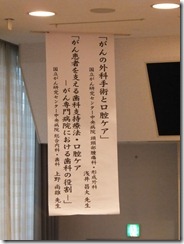 「がんの外科手術と口腔ケア」
国立がん研究センター中央病院 頭頸部腫瘍科・形成外科
浅井 昌大 先生
「がん患者を支える歯科支持療法・口腔ケア
－がん専門病院における歯科の役割－」
国立がん研究センター中央病院 総合内科・歯科
上野 尚雄 先生